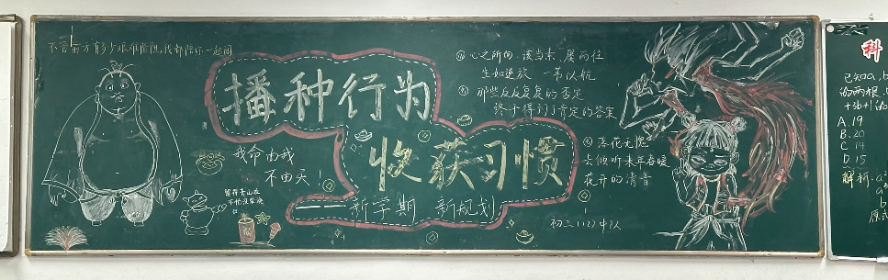 不管前方有多少艰难险阻，我都陪你一起闯
播种行为
收获习惯
新学期 新规划
我命由我
不由天！
留得青山在
不怕没柴烧
心之所向，
生如逆旅 一苇以航
那些反反复复的否定
终于得到了肯定的答案
落花无
去倾听来年春暖
花开的清音
初三（12）中队
科
已知a,b
的两根,
A.19
B.20
C.14
D.15
解析: